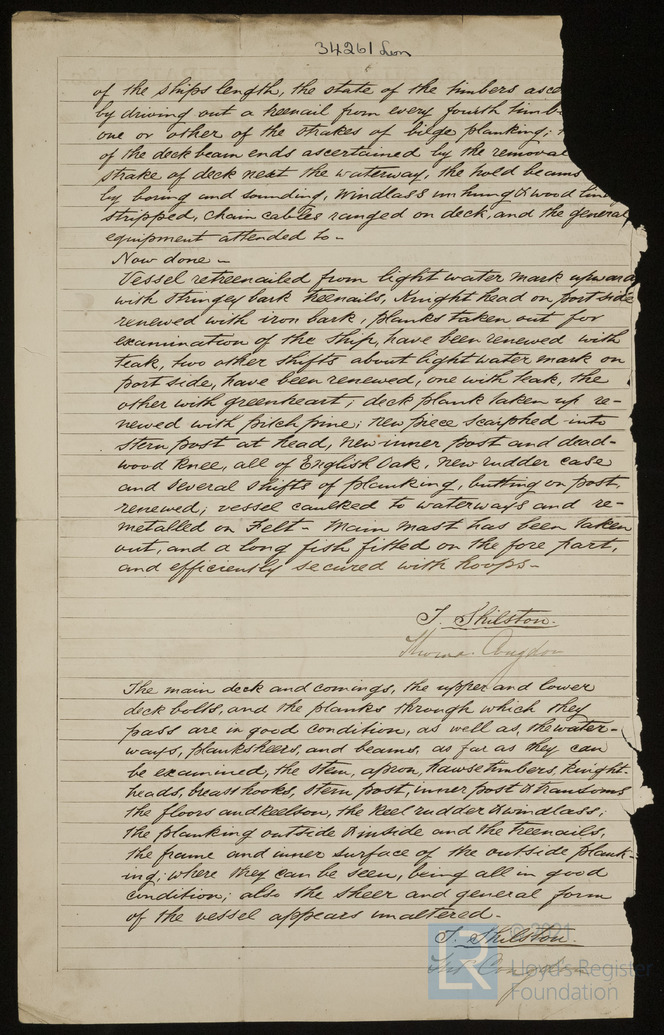 34261 Lon
of the ships length, the state of the timbers asce
by driving out a treenail from every fourth timb
one or other of the strakes of bilge planking;
of the deck beam ends ascertained by the removal
strake of deck next the waterway; the hold beams
by boring and sounding, Windlass unhung & wood lin
stripped, chain cables ranged on deck, and the general
equipment attended to -
Now done -
Vessel retreenailed from light water mark upward
with stringey bark treenails, Knight head on port side
renewed with iron bark; planks taken out for
examination of the ship, have been renewed with
teak, two other shifts about light water mark on
port side, have been renewed, one with teak, the
other with greenheart; deck plank taken up re-
newed with pitch pine; new piece scarphed into
stern post at head, new inner post and dead-
wood knee, all of English Oak, new rudder case
and several shifts of planking, butting on post
renewed; vessel caulked to waterways and re-
metalled on Felt - Main mast has been taken
out, and a long fish fitted on the fore part,
and efficiently secured with hoops -
T. Shilston.
Thomas Congdon
The main deck and comings, the upper and lower
deck bolts, and the planks through which they
pass are in good condition, as well as, the water-
ways, planksheers, and beams, as far as they can
be examined, the stem, apron, hawse timbers, knight-
heads, breasthooks, stern post, inner post & transoms
the floors and keelson, the keel rudder & windlass;
the planking outside & inside and the treenails,
the frame and inner surface of the outside plank-
ing; where they can be seen, being all in good
condition; also the sheer and general form
of the vessel appears unaltered -
T. Shilston.
Thos Congdon
LR
Lloyd's Register
Foundation